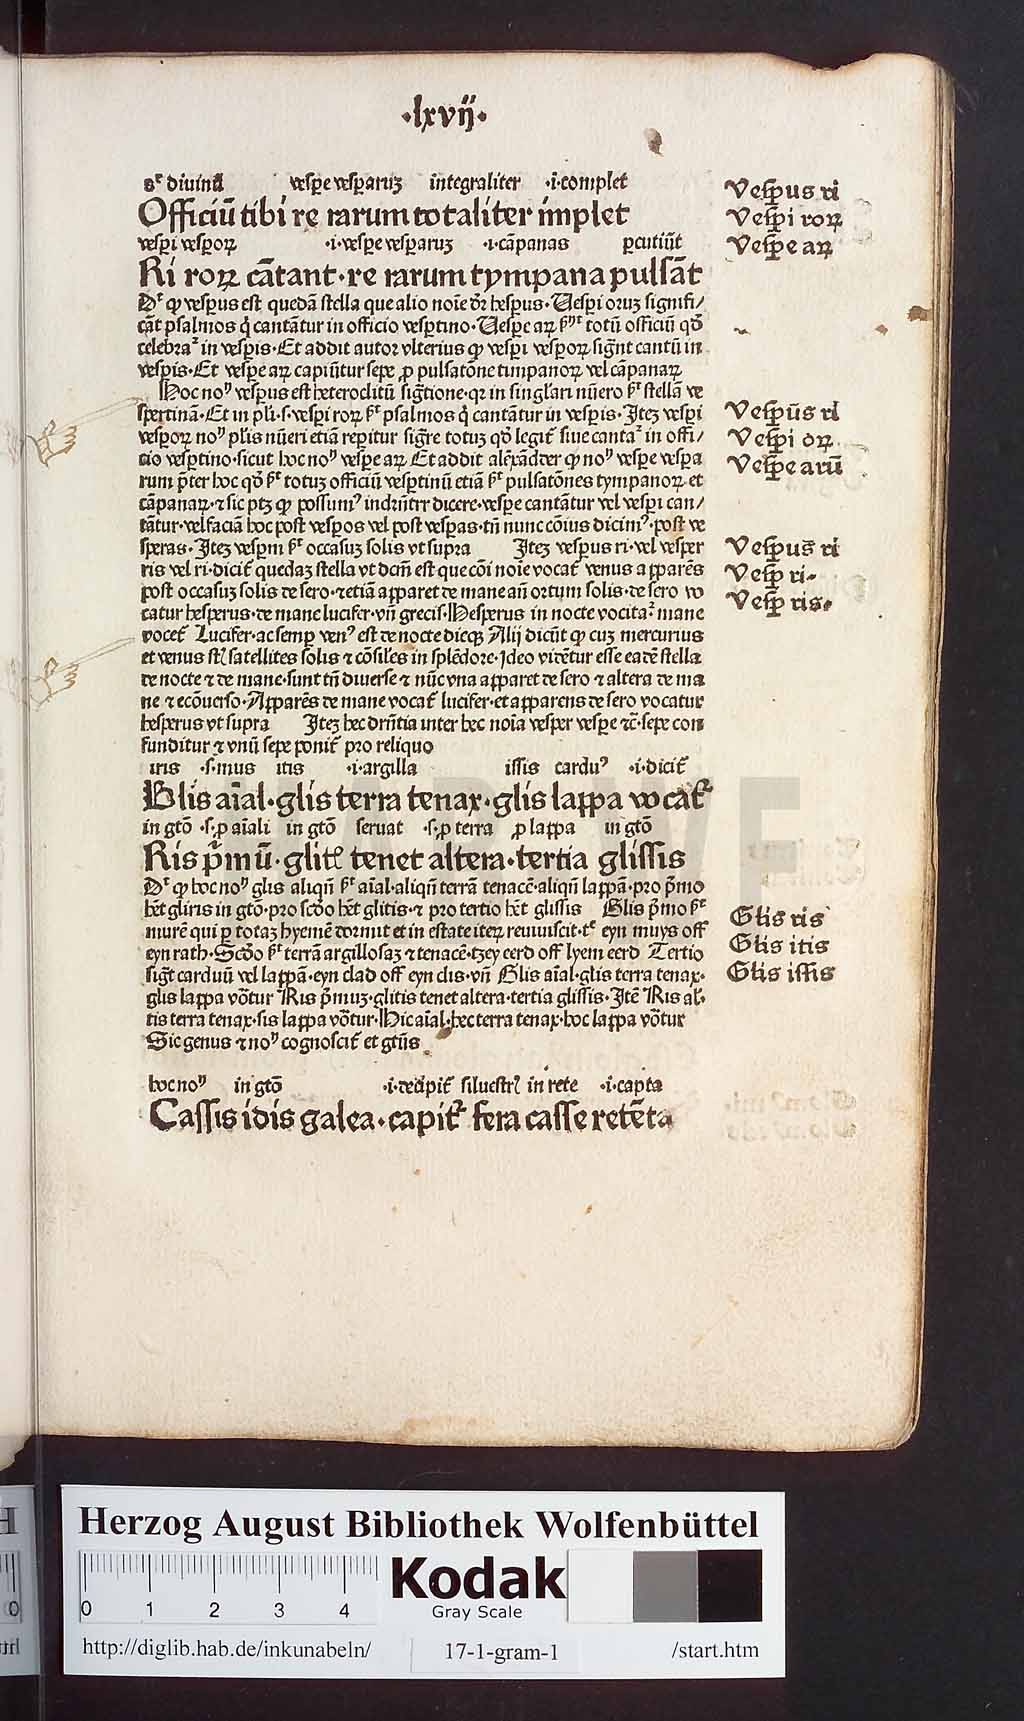 ·lxvij·
sᵉ diuinū vesꝑe vesꝑaruꝫ integraliter ·i·complet
Officiū tibi re rarum totaliter implet
vesꝑi vesꝑoꝝ ·i·vesꝑe vesꝑaruꝫ ·i·cāpanas ꝑcutiūt
Ri roꝝ cātant·re rarum tympana pulsāt
Dʳ qꝫ vesꝑus est quedā stella que alio noīe dr̄ hesꝑus·Uesꝑi oruꝫ signifi/
cāt psalmos q̄ cantātur in officio vesꝑtino·Uesꝑe aꝝ sᵗ totū officiū qd̄
celebraᵗ in vesꝑis·Et addit autor vlterius qꝫ vesꝑi vesꝑoꝝ sign̄t cantū in
vesꝑis·Et vesꝑe aꝝ capiūtur sepe ꝓ pulsatōne timpanoꝝ vel cāpanaꝝ
Hoc noᵐ vesꝑus est heteroclitū sigt̄ione·qꝛ in singl'ari nūero sᵗ stellā ve
sꝑtinā·Et in pl'i·s·vesꝑi roꝝ sᵗ psalmos q̄ cantātur in vesꝑis·Iteꝫ vesꝑi
vesꝑoꝝ noᵐ pl'is nūeri etiā reꝑitur sigr̄e totuꝫ qd̄ legit̄ siue cantaᵗ in offi/
cio vesꝑtino·sicut hoc noᵐ vesꝑe aꝝ Et addit alexāder qꝫ noᵐ vesꝑe vesꝑa
rum p̄ter hoc qd̄ sᵗ totuꝫ officiū vesꝑtinū etiā sᵗ pulsatōnes tympanoꝝ et
cāpanaꝝ·⁊ sic ptꝫ qꝫ possumꝰ indrn̄tr dicere·vesꝑe cantātur vel vesꝑi can/
tātur·vel faciā hoc post vesꝑos vel post vesꝑas·tn̄ nunc cōius dicimꝰ·post ve
sꝑas·Iteꝫ vesꝑm sᵗ occasuꝫ solis vt supra Iteꝫ vesꝑus ri·vel vesꝑer
ris vel ri·dicit̄ quedaꝫ stella vt dcm̄ est que cōi noīe vocat̄ venus apparēs
post occasuꝫ solis de sero·⁊etiā apparet de mane an̄ ortum solis·de sero vo
catur hesꝑerus·de mane lucifer·vn̄ grecis·Hesꝑerus in nocte vocitaᵗ mane
vocet̄ Lucifer·ac semꝑ venꝰ est de nocte dieqꝫ Alij dicūt qꝫ cuꝫ mercurius
et venus st̄ satellites solis ⁊ cōsil'es in splēdore·Ideo vidētur esse eadē stella
de nocte ⁊ de mane·sunt tn̄ diuerse ⁊ nūc vna apparet de sero ⁊ altera de ma
ne ⁊ ecōuerso·Apparēs de mane vocat̄ lucifer·et apparens de sero vocatur
hesꝑerus vt supra Iteꝫ hec drn̄tia inter hec noīa vesꝑer vesꝑe ⁊c̄·sepe con
funditur ⁊ vnū sepe ponit̄ pro reliquo
iris ·s·mus itis ·i·argilla issis carduꝰ ·i·dicit̄
Glis aīal·glis terra tenax·glis lappa vocatᵗ
in gtō ·s·ꝓ aīali in gtō seruat ·s·ꝓ terra ꝓ lappa in gtō
Ris p̄mū·glit' tenet altera·tertia glissis
Dʳ qꝫ hoc noᵐ glis aliqn̄ sᵗ aīal·aliqn̄ terrā tenacē·aliqn̄ lappā·pro p̄mo
hēt gliris in gtō·pro scd̄o hēt glitis·⁊ pro tertio hēt glissis Glis p̄mo sᵗ
murē qui ꝑ totaꝫ hyemē dormit et in estate iteꝝ reuiuiscit·tᵉ eyn muys off
eyn rath·Scd̄o sᵗ terrā argillosaꝫ ⁊ tenacē·tzey eerd off lyem eerd Tertio
sigt̄ carduū vel lappā·eyn clad off eyn clis·vn̄ Glis aīal·glis terra tenax·
glis lappa vōtur Ris p̄muꝫ·glitis tenet altera·tertia glissis·Itē Ris al'·
tis terra tenax·sis lappa vōtur·Hic aīal·hec terra tenax·hoc lappa vōtur
Sic genus ⁊ noᵐ cognoscit̄ et gtūs
hoc noᵐ in gtō ·i·decipit̄ siluestr' in rete ·i·capta
Cassis idis galea·capitᵗ fera casse retēta
Vesꝑus ri
Vesꝑi roꝝ
Vesꝑe aꝝ
Vesꝑūs ri
Vesꝑi oꝝ
Vesꝑe arū
Vesꝑus ri
Vesꝑ ri·
Vesꝑ ris·
Glis ris
Glis itis
Glis issis
HAB WF
Herzog August Bibliothek Wolfenbüttel
0 1 2 3 4
Kodak
Gray Scale
http://diglib.hab.de/inkunabeln/ 17-1-gram-1 /start.htm